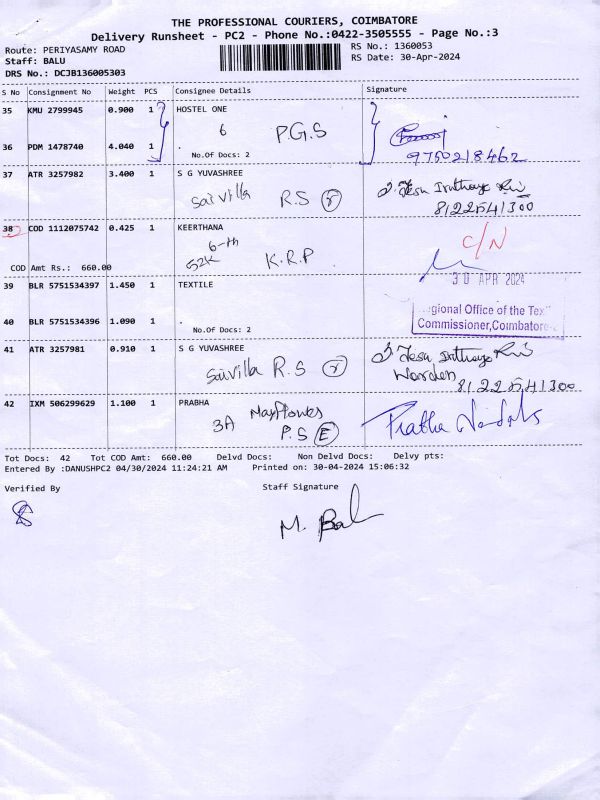 THE PROFESSIONAL COURIERS, COIMBATORE
Delivery Runsheet - PC2 - Phone No.:0422-3505555 - Page No.:3
Route: PERIYASAMY ROAD RS No.: 1360053
Staff: BALU RS Date: 30-Apr-2024
DRS No.: DCJB136005303
S No Consignment No Weight PCS Consignee Details Signature
35 KMU 2799945 0.900 1 HOSTEL ONE
6 P.G.S
36 PDM 1478740 4.040 1 .
No.Of Docs: 2 9750218462
37 ATR 3257982 3.400 1 S G YUVASHREE
Saivilla R.S r
8122541300
38 COD 1112075742 0.425 1 KEERTHANA
6-th C/N
52K K.R.P
COD Amt Rs.: 660.00
30 APR 2024
39 BLR 5751534397 1.450 1 TEXTILE
egional Office of the Tex
40 BLR 5751534396 1.090 1 .
Commissioner,Coimbatore-
No.Of Docs: 2
41 ATR 3257981 0.910 1 S G YUVASHREE
Saivilla R.S r Warden
8122541300
42 IXM 506299629 1.100 1 PRABHA
3A Mayflowers Prabha
P.S E
Tot Docs: 42 Tot COD Amt: 660.00 Delvd Docs: Non Delvd Docs: Delvy pts:
Entered By :DANUSHPC2 04/30/2024 11:24:21 AM Printed on: 30-04-2024 15:06:32
Verified By Staff Signature
M. Bal